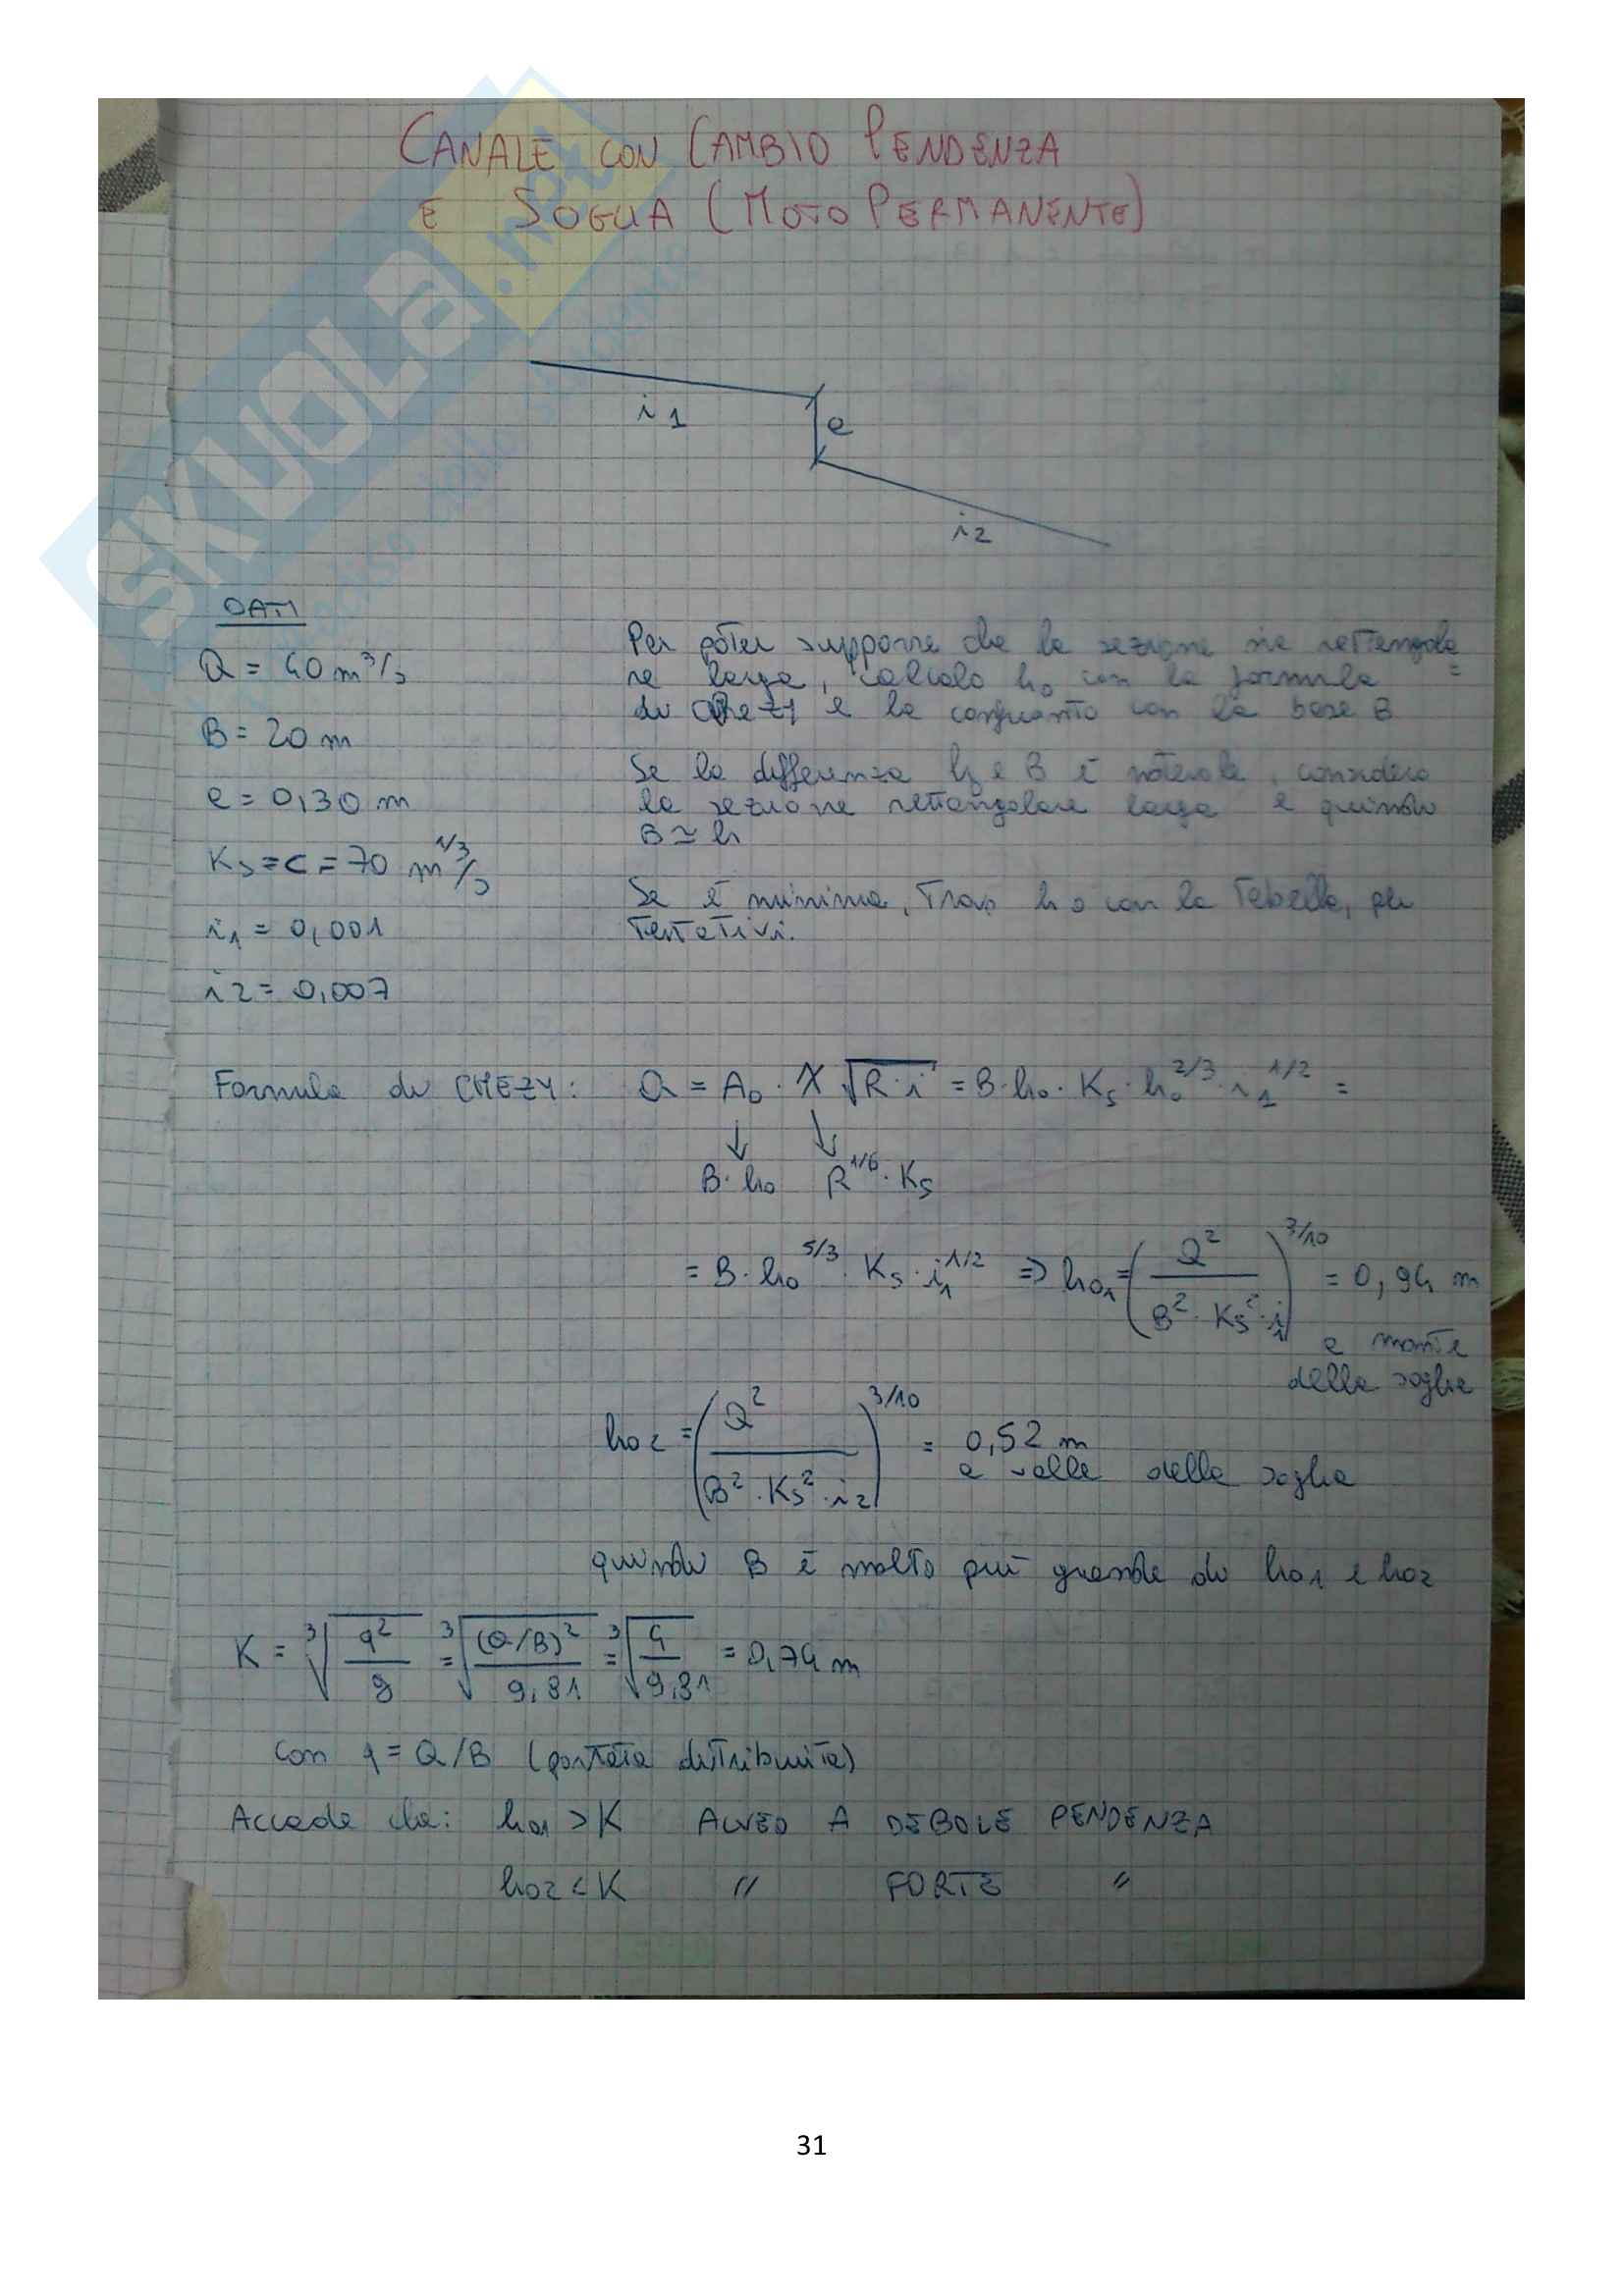 CANALE CON CAMBIO PENDENZA
E SOGLIA (MOTO PERMANENTE)
i1
e
i2
DATI
Q = 40 m³/s
B = 20 m
e = 0,30 m
Ks = C = 70 m^1/3/s
i1 = 0,001
i2 = 0,007
Per poter supporre che la sezione sia rettangola=
re larga, calcolo h0 con la formula
di CHEZY e la confronto con la base B
Se la differenza h e B è notevole, considero
la sezione rettangolare larga e quindi
B ≃ h
Se è minima, trovo h0 con la Tabella, per
tentativi.
Formula di CHEZY: Q = A0 · X √R·i = B·h0 · Ks · h0^2/3 · i1^1/2 =
↓ ↓
B·h0 R^1/6 · Ks
= B·h0^5/3 · Ks · i1^1/2 => h01 = (Q² / B² · Ks² · i1)^3/10 = 0,94 m
a monte
della soglia
h02 = (Q² / B² · Ks² · i2)^3/10 = 0,52 m
a valle della soglia
quindi B è molto più grande di h01 e h02
K = ³√q²/g = ³√(Q/B)²/9,81 = ³√4/9,81 = 0,74 m
con q = Q/B (portata distribuita)
Accade che: h01 > K ALVEO A DEBOLE PENDENZA
h02 < K // FORTE "
31
SKUOLA.net